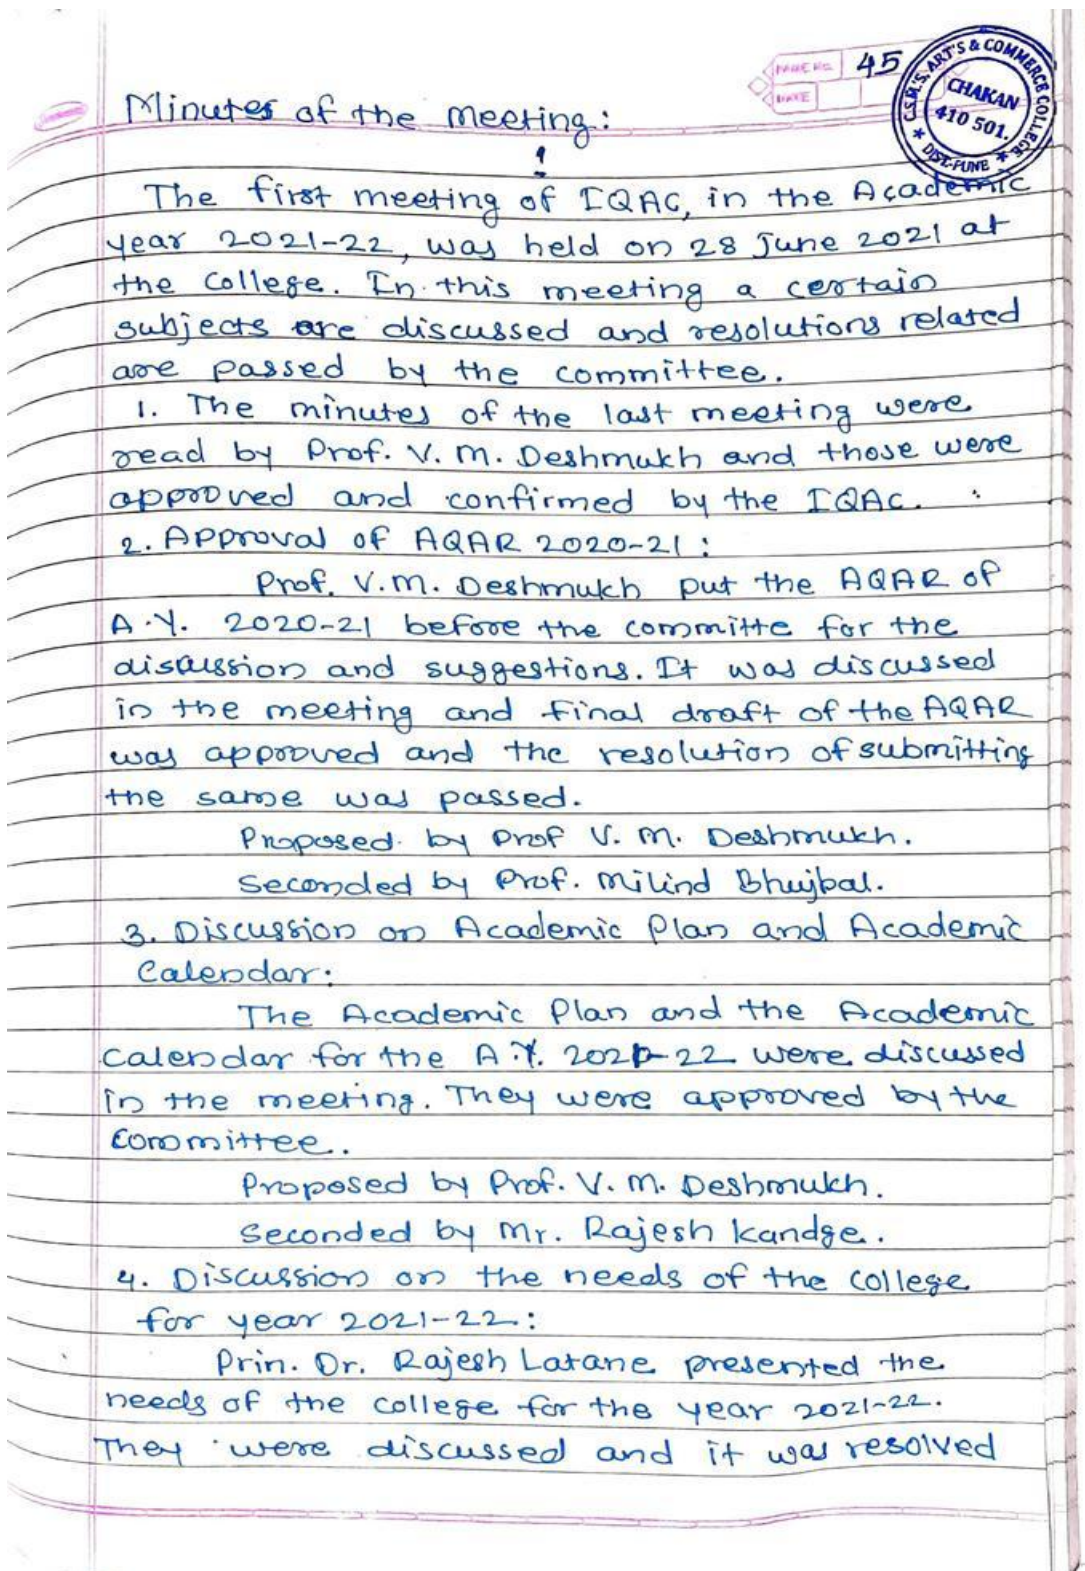 PAGE NO. 45
DATE
C.S.M.S. ART'S & COMMERCE COLLEGE
CHAKAN
410 501.
* DIST-PUNE *
Minutes of the meeting:
1
The first meeting of IQAC, in the Academic
year 2021-22, was held on 28 June 2021 at
the College. In this meeting a certain
subjects are discussed and resolutions related
are passed by the committee.
1. The minutes of the last meeting were
read by Prof. V. M. Deshmukh and those were
approved and confirmed by the IQAC.
2. Approval of AQAR 2020-21:
Prof. V.M. Deshmukh put the AQAR of
A.Y. 2020-21 before the committe for the
discussion and suggestions. It was discussed
in the meeting and final draft of the AQAR
was approved and the resolution of submitting
the same was passed.
Proposed by Prof V. M. Deshmukh.
Seconded by Prof. Milind Bhujbal.
3. Discussion on Academic Plan and Academic
Calendar:
The Academic Plan and the Academic
Calendar for the A.Y. 2021-22 were discussed
in the meeting. They were approved by the
Committee.
Proposed by Prof. V. M. Deshmukh.
Seconded by Mr. Rajesh Kandge.
4. Discussion on the needs of the college
for year 2021-22:
Prin. Dr. Rajesh Latane presented the
needs of the college for the year 2021-22.
They were discussed and it was resolved